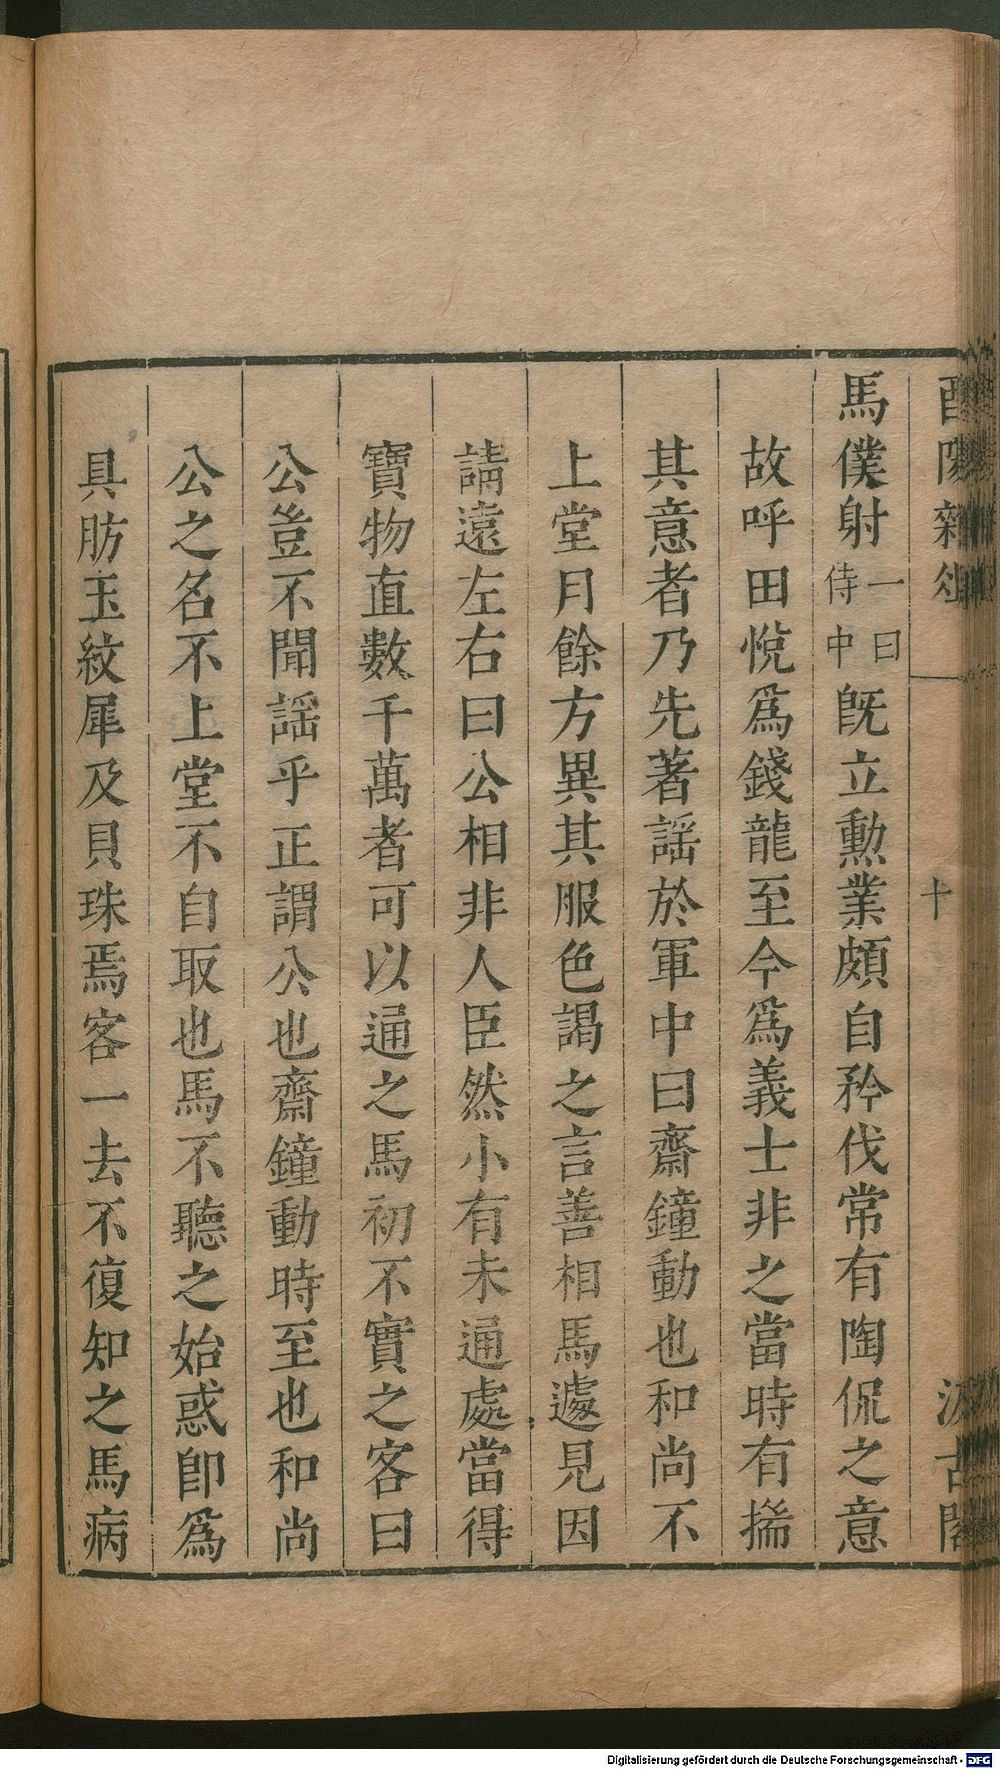 酉陽雜俎
十
汲古閣
馬僕射一曰侍中旣立勲業頗自矜伐常有陶侃之意
故呼田悅爲錢龍至今爲義士非之當時有揣
其意者乃先著謡於軍中曰齋鐘動也和尚不
上堂月餘方異其服色謁之言善相馬遽見因
請遠左右曰公相非人臣然小有未通處當得
寶物直數千萬者可以通之馬初不實之客曰
公豈不聞謡乎正謂公也齋鐘動時至也和尚
公之名不上堂不自取也馬不聽之始惑卽爲
具肪玉紋犀及貝珠焉客一去不復知之馬病
Digitalisierung gefördert durch die Deutsche Forschungsgemeinschaft - DFG